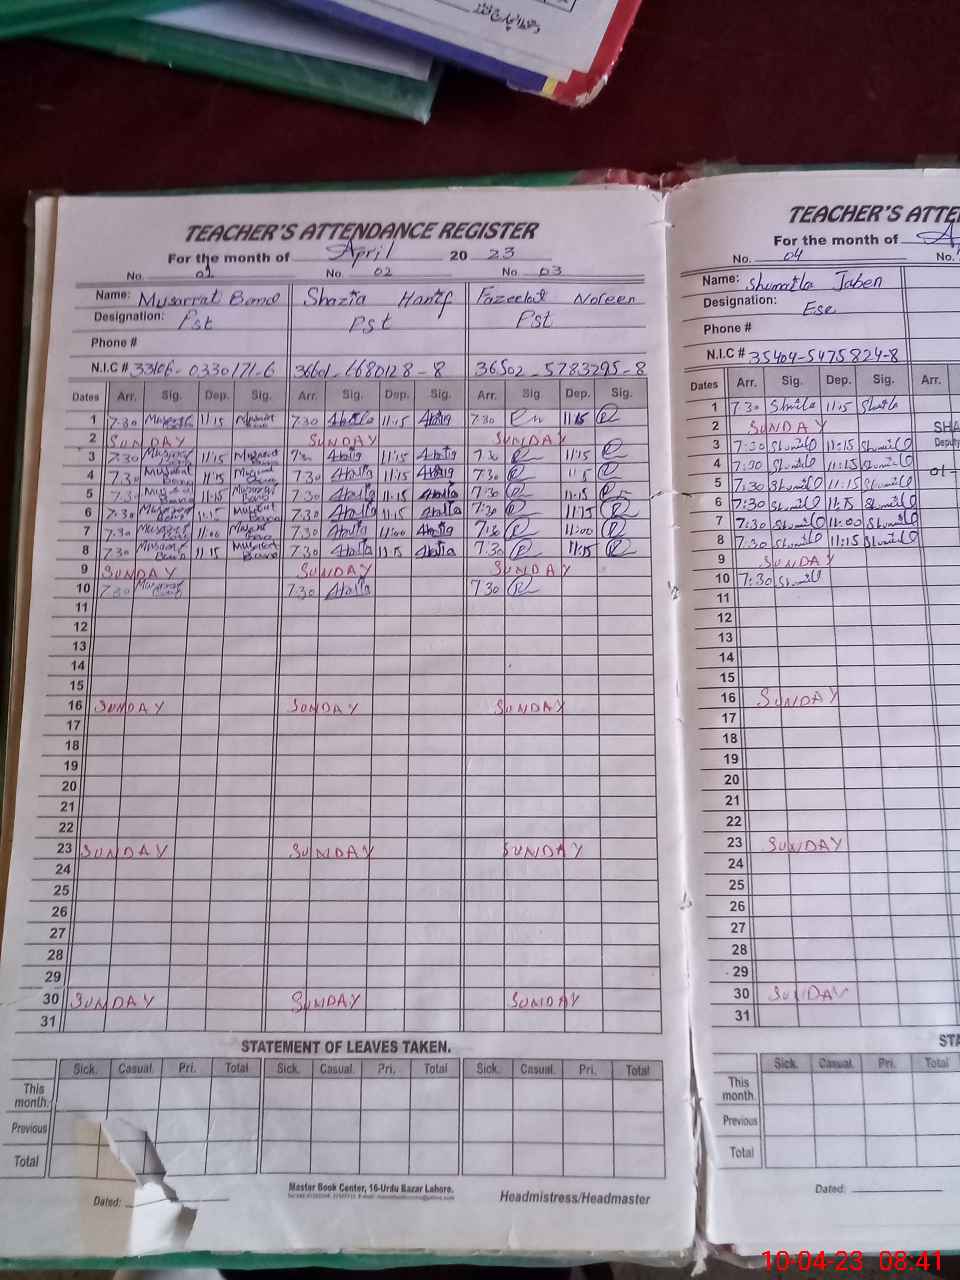 TEACHER'S ATTENDANCE REGISTER
For the month of April 20 23
No. 01 No. 02 No. 03
Name: Musarrat Bano Shazia Hanif Fazeelat Noreen
Designation: Pst Pst Pst
Phone #
N.I.C # 33106-0330171-6 36601-1680128-8 36502-5783295-8
Dates Arr. Sig. Dep. Sig. Arr. Sig. Dep. Sig. Arr. Sig. Dep. Sig.
1 7:30 11:15 7:30 11:15 7:30 11:15
2 SUNDAY SUNDAY SUNDAY
3 7:30 11:15 7:30 11:15 7:30 11:15
4 7:30 11:15 7:30 11:15 7:30 11:15
5 7:30 11:15 7:30 11:15 7:30 11:15
6 7:30 11:15 7:30 11:15 7:30 11:15
7 7:30 11:00 7:30 11:00 7:30 11:00
8 7:30 11:15 7:30 11:15 7:30 11:15
9 SUNDAY SUNDAY SUNDAY
10 7:30 7:30 7:30
11
12
13
14
15
16 SUNDAY SUNDAY SUNDAY
17
18
19
20
21
22
23 SUNDAY SUNDAY SUNDAY
24
25
26
27
28
29
30 SUNDAY SUNDAY SUNDAY
31
STATEMENT OF LEAVES TAKEN.
Sick. Casual. Pri. Total Sick. Casual. Pri. Total Sick. Casual. Pri. Total
This month.
Previous
Total
Dated:
Master Book Center, 16-Urdu Bazar Lahore.
Headmistress/Headmaster
TEACHER'S ATTE
For the month of A
No. 04 No.
Name: Shumaila Jaben
Designation: Ese
Phone #
N.I.C # 35404-5475824-8
Dates Arr. Sig. Dep. Sig. Arr.
1 7:30 11:15
2 SUNDAY
3 7:30 11:15
4 7:30 11:15
5 7:30 11:15
6 7:30 11:15
7 7:30 11:00
8 7:30 11:15
9 SUNDAY
10 7:30
11
12
13
14
15
16 SUNDAY
17
18
19
20
21
22
23 SUNDAY
24
25
26
27
28
29
30 SUNDAY
31
SHA
Deputy
01-
STA
Sick. Casual. Pri. Total
This month.
Previous
Total
Dated:
10-04-23 08:41